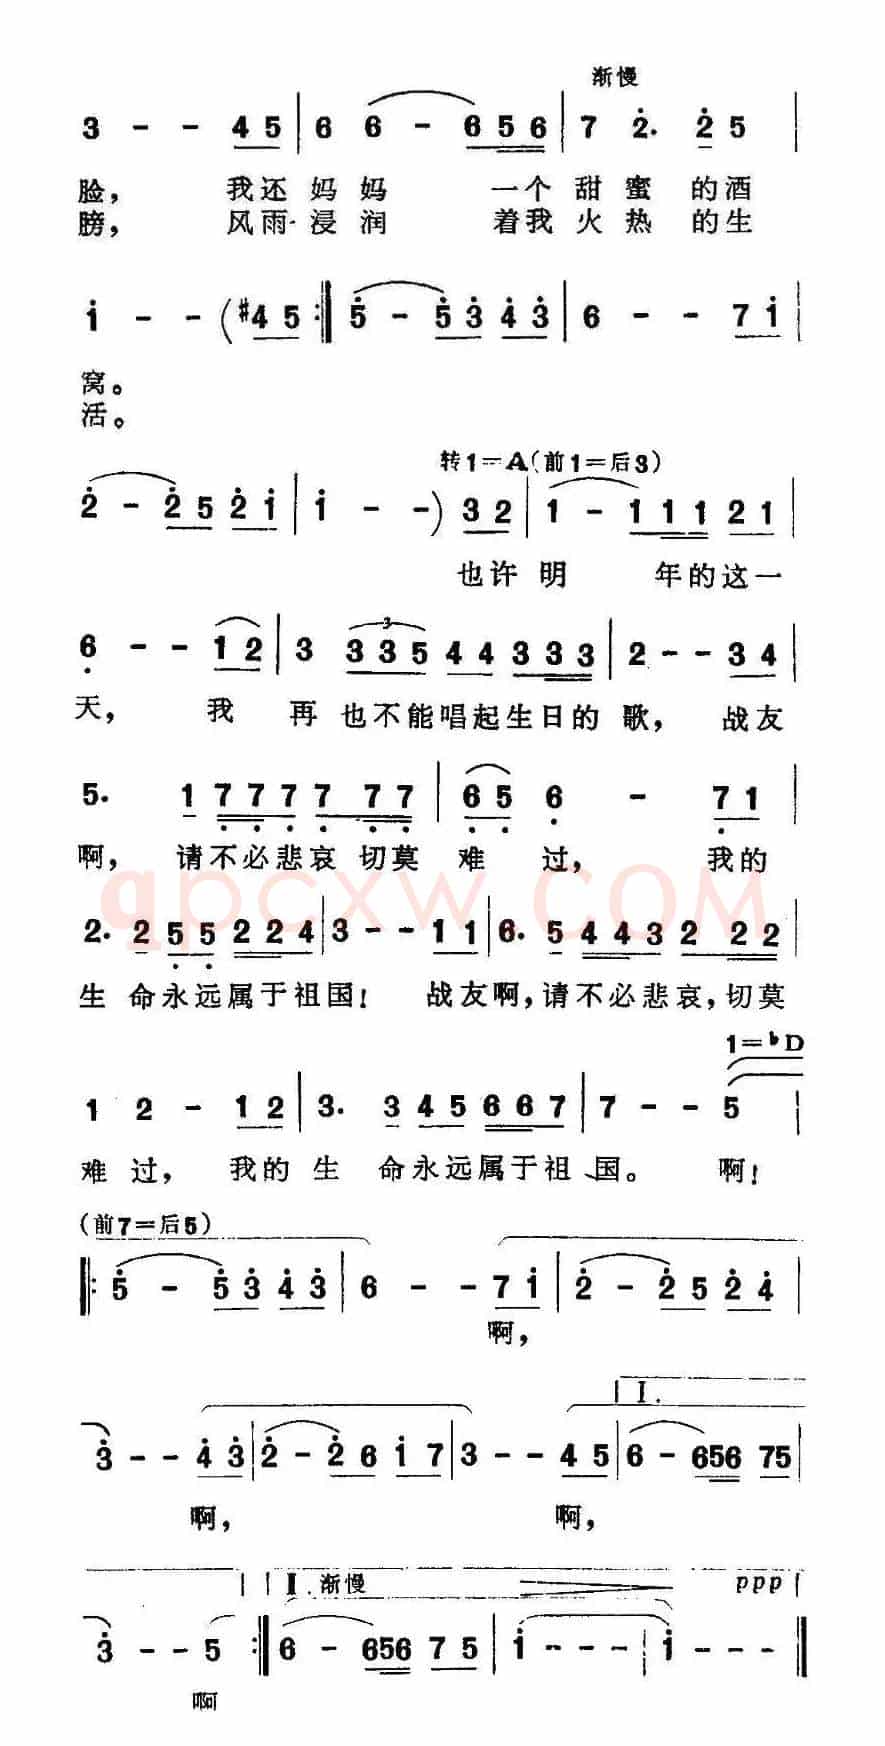 渐慢
3 - - 4 5 | 6 6 - 6 5 6 | 7 2. 2 5 |
脸, 我还妈妈 一个甜蜜的酒
膀, 风雨浸润 着我火热的生
1 - - (#4 5 :‖ 5 - 5 3 4 3 | 6 - - 7 1 |
窝。
活。
转1=A(前1=后3)
2 - 2 5 2 1 | 1 - -) 3 2 | 1 - 1 1 1 2 1 |
也许明 年的这一
6 - - 1 2 | 3 3 3 5 4 4 3 3 3 | 2 - - 3 4 |
天, 我 再也不能唱起生日的歌, 战友
5. 1 7 7 7 7 7 7 | 6 5 6 - 7 1 |
啊, 请不必悲哀切莫难过, 我的
qpcxw.COM
2. 2 5 5 2 2 4 | 3 - - 1 1 | 6. 5 4 4 3 2 2 2 |
生命永远属于祖国! 战友啊,请不必悲哀,切莫
1=bD
1 2 - 1 2 | 3. 3 4 5 6 6 7 | 7 - - 5 |
难过, 我的生命永远属于祖国。 啊!
(前7=后5)
‖: 5 - 5 3 4 3 | 6 - - 7 1 | 2 - 2 5 2 4 |
啊,
I.
3 - - 4 3 | 2 - 2 6 1 7 | 3 - - 4 5 | 6 - 6 5 6 7 5 |
啊, 啊,
II.渐慢 ppp
3 - - 5 :‖ 6 - 6 5 6 7 5 | 1 - - - | 1 - - - ‖
啊